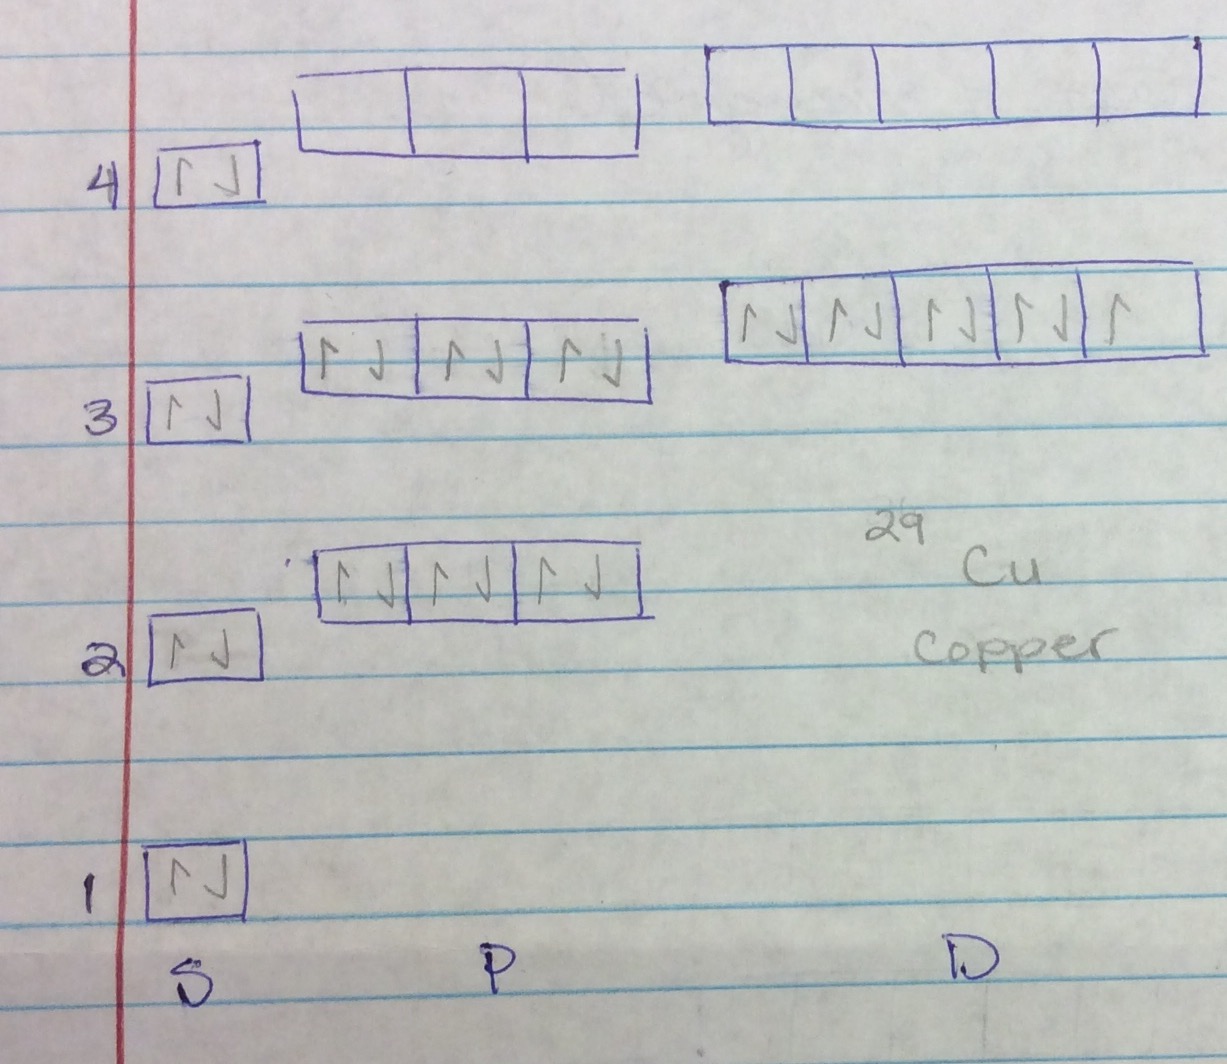 4 ↿⇂
3 ↿⇂ ↿⇂ ↿⇂ ↿⇂ ↿⇂ ↿⇂ ↿⇂ ↿⇂ ↿
29
Cu
2 ↿⇂ ↿⇂ ↿⇂ ↿⇂
Copper
1 ↿⇂
S P D